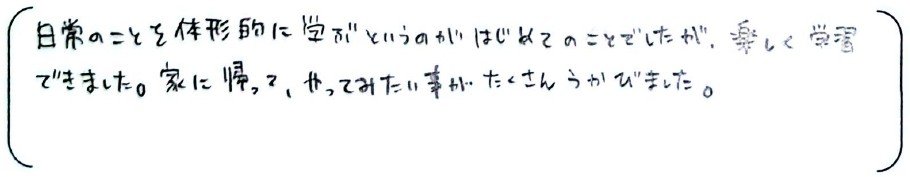 日常のことを体形的に学ぶというのがはじめてのことでしたが、楽しく学習
できました。家に帰って、やってみたい事がたくさんうかびました。